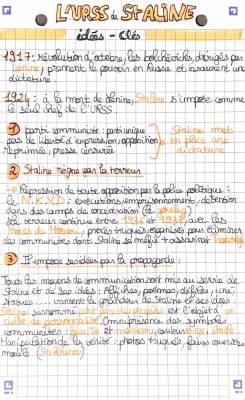 L'URSS de STALINE
idées - clés
1917 : révolution d'octobre, les bolcheviks, dirigés par
Lénine, prennent le pouvoir en Russie et instaurent une
dictature
1924 : à la mort de Lénine, Staline s'impose comme
le seul chef de l'URSS
1 parti communiste : parti unique
pas de liberté d'expression, opposition
réprimée, presse censurée
Staline met
en place une
dictature
2 Staline règne par la terreur
↳ Répression de toute opposition par la police politique :
le N.K.V.D : exécutions, emprisonnement, détention
dans des camps de concentration (le goulag)
la terreur continue entre 1936 et 1938 avec les
Procès de Moscou, procès truqués organisés pour éliminer
les communistes dont Staline se méfie + assassinat
3 Il impose ses idées par la propagande :
Tous les moyens de communication sont mis au service de
Staline et de ses idées : Affiches, poèmes, défilés,
statues... vantent la grandeur de Staline et ses idées
Staline surnommé petit père des peuples est l'objet d'un
culte de personnalité. Omniprésence des symboles
communistes : faucille et marteau, couleur rouge, étoile
Manipulation de la vérité : photos truquées, faux ouvriers
modèle (Stakhanov)